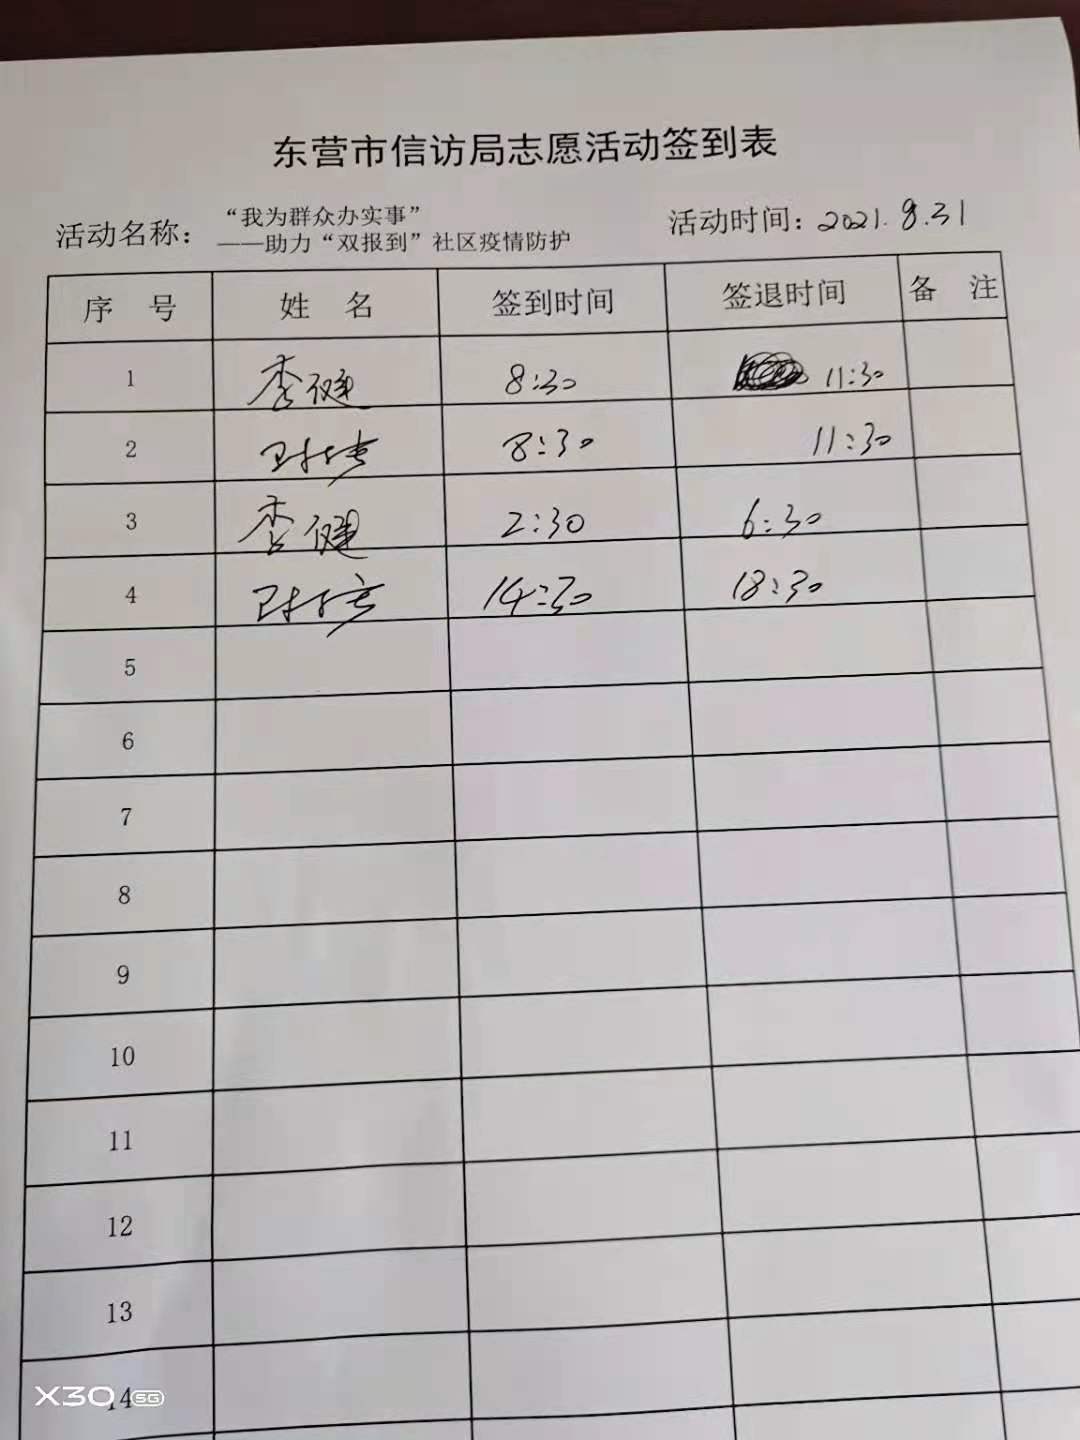 东营市信访局志愿活动签到表
活动名称： “我为群众办实事” ——助力“双报到”社区疫情防护 活动时间：2021.8.31
序 号 姓 名 签到时间 签退时间 备 注
1 李健 8:30 11:30
2 8:30 11:30
3 李健 2:30 6:30
4 14:30 18:30
5
6
7
8
9
10
11
12
13
14
X30 5G